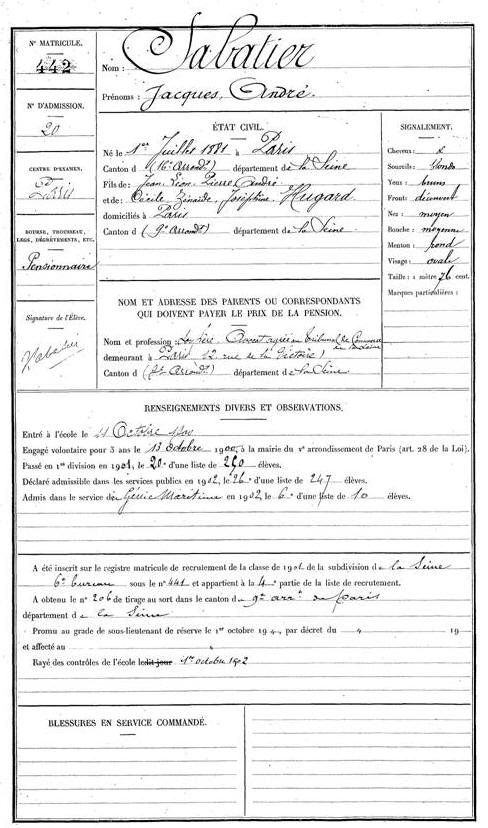 N° MATRICULE.
442
N° D'ADMISSION.
20
CENTRE D'EXAMEN,
Paris
BOURSE, TROUSSEAU,
LEGS, DÉGRÈVEMENTS, ETC.
Pensionnaire
Signature de l'Élève.
JSabatier
Nom : Sabatier
Prénoms : Jacques, André.
ÉTAT CIVIL.
Né le 1er Juillet 1881 à Paris
Canton d (16e Arrondt) département de la Seine
Fils de : Jean Léon Pierre André
et de : Cécile Zénaïde, Joséphine Hugard
domiciliés à Paris
(9e Arrondt) département de la Seine
SIGNALEMENT.
Cheveux : &
Sourcils : blonds
Yeux : bruns
Front : découvert
Nez : moyen
Bouche : moyenne
Menton : rond
Visage : ovale
Taille : 1 mètre 76 cent.
Marques particulières :
NOM ET ADRESSE DES PARENTS OU CORRESPONDANTS
QUI DOIVENT PAYER LE PRIX DE LA PENSION.
Nom et profession : Son père, Avocat agréé au Tribunal de Commerce de la Seine
demeurant à Paris 12 rue de la Victoire)
Canton d (9e Arrondt) département de la Seine
RENSEIGNEMENTS DIVERS ET OBSERVATIONS.
Entré à l'école le Octobre 1900
Engagé volontaire pour 3 ans le 13 octobre 1900, à la mairie du Ve arrondissement de Paris (art. 28 de la Loi).
Passé en 1re division en 1901, le 28e d'une liste de 250 élèves.
Déclaré admissible dans les services publics en 1902, le 26e d'une liste de 247 élèves.
Admis dans le service du Génie Maritime en 1902 le 6e d'une liste de 10 élèves.
A été inscrit sur le registre matricule de recrutement de la classe de 1901 de la subdivision de la Seine
6e bureau sous le n° 441 et appartient à la 4e partie de la liste de recrutement.
A obtenu le n° 206 de tirage au sort dans le canton du 9e arrt de Paris
département de la Seine
Promu au grade de sous-lieutenant de réserve le 1er octobre 19 , par décret du 19
et affecté au
Rayé des contrôles de l'école le dit jour 1er octobre 1902
BLESSURES EN SERVICE COMMANDÉ.